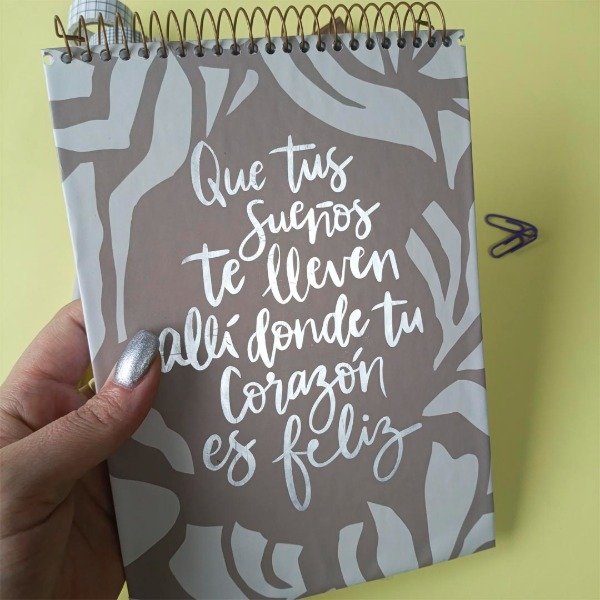 Que tus
sueños
te lleven
allí donde tu
corazón
es feliz